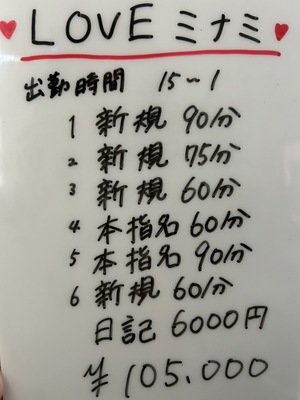 LOVE ミナミ
出勤時間 15~1
1 新規 90分
2 新規 75分
3 新規 60分
4 本指名 60分
5 本指名 90分
6 新規 60分
日記 6000円
¥105.000